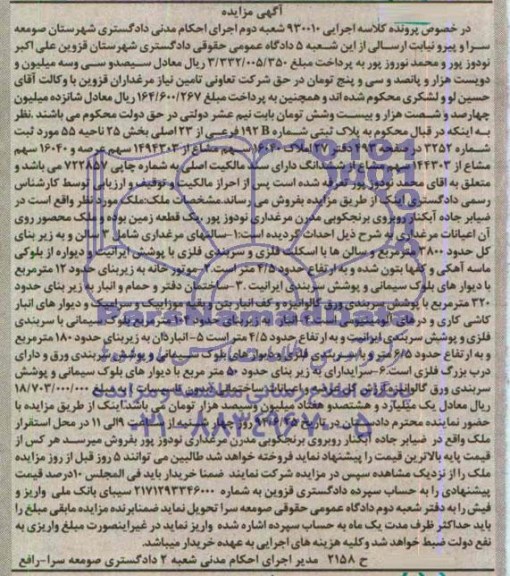 آگهی مزایده
در خصوص پرونده کلاسه اجرایی ۹۳۰۰۱۰ شعبه دوم اجرای احکام مدنی دادگستری شهرستان صومعه
سرا و پیرو نیابت ارسالی از این شعبه ۵ دادگاه عمومی حقوقی دادگستری شهرستان قزوین علی اکبر
نودوز پور و محمد نوروز پور به پرداخت مبلغ ۳/۳۳۲/۰۰۵/۳۵۰ ریال معادل سیصدو سی وسه میلیون و
دویست هزار و پانصد و سی و پنج تومان در حق شرکت تعاونی تامین نیاز مرغداران قزوین با وکالت آقای
حسین لو و لشکری محکوم شده اند و همچنین به پرداخت مبلغ ۱۶۴/۶۰۰/۲۶۷ ریال معادل شانزده میلیون
چهارصد و شصت هزار و بیست وشش تومان بابت نیم عشر دولتی در حق دولت محکوم می باشند. نظر
به اینکه در قبال محکوم به پلاک ثبتی شماره B ۱۹۲ فرعی از ۲۳ اصلی بخش ۲۵ ناحیه ۵۵ مورد ثبت
شماره ۳۲۵۲ در صفحه ۴۹۳ دفتر ۲۷ املاک ۱۶۰۴۰ سهم مشاع از ۱۴۹۴۳۰۳ سهم عرصه و ۱۶۰۴۰ سهم
مشاع از ۱۴۴۳۰۳ سهم مشاع از ششدانگ دارای سند مالکیت اصلی به شماره چاپی ۷۲۲۸۵۷ می باشد و
متعلق به اقای محمد نودوز پور تعرفه شده است پس از احراز مالکیت و توقیف و ارزیابی توسط کارشناس
رسمی دادگستری اینک از طریق مزایده بفروش می رساند مشخصات ملک: ملک مورد نظر واقع است در
ضیابر جاده آبکنار روبروی برنجکوبی مدرن مرغداری نودوز پور .یک قطعه زمین بوده و ملک محصور روی
آن اعیانات مرغداری به شرح ذیل احداث گردیده است:۱-سالنهای مرغداری شامل ۳ سالن و به زیر بنای
کل حدود ۳۸۰۰ مترمربع و سالن ها با اسکلت فلزی و سربندی فلزی با پوشش ایرانیت و دیواره از بلوکی
ماسه آهکی و کفها بتون شده و به ارتفاع حدود ۴/۵ متر است.۲- موتور خانه به زیربنای حدود ۱۲ مترمربع
با دیوار های بلوک سیمانی و پوشش سربندی ایرانیت .۳-ساختمان دفتر و حمام و انبار به زیر بنای حدود
۳۲۰ مترمربع با پوشش سربندی ورق گالوانیزه و کف انبار بتن وبقیه موزاییک و سرامیک و دیوار های انبار
کاشی کاری و درهای الومینیومی است.۴- انبار به زیربنای حدود مترمربع بلوک سیمانی با سربندی
فلزی و پوشش سربندی ایرانیت و به ارتفاع حدود ۴/۵ متر است ۵-انباردان به زیربنای حدود ۱۸۰ مترمربع
و به ارتفاع حدود ۶/۵ متر و با سربندی فلزی و دیوار های بلوک سیمانی و پوشش سربندی ورق و دارای
درب بزرگ فلزی است.۶-سرایدارای به زیر بنای حدود ۵۰ متر مربع با دیوار های بلوک سیمانی و پوشش
سربندی ورق گالوانیزه ارزش کل عرصه واعیانات ساختمانی بدون تاسیسات به مبلغ ۱۸/۷۰۳/۰۰۰/۰۰۰
ریال معادل یک میلیارد و هشتصدو هفتاد میلیون وسیصد هزار تومان می باشد.اینک از طریق مزایده با
حضور نماینده محترم دادستان در تاریخ روز چهارشنبه از ساعت ۹ الی ۱۱ در محل استقرار
ملک واقع در ضیابر جاده آبکنار روبروی برنجکوبی مدرن مرغداری نودوز پور بفروش میرسد هر کس از
قیمت پایه بالاترین قیمت را پیشنهاد نماید فروخته خواهد شد طالبین می توانند ۵ روز قبل از روز مزایده
ملک را از نزدیک مشاهده سپس در مزایده شرکت نمایند ضمنا خریدار باید فی المجلس ۱۰درصد قیمت
پیشنهادی را به حساب سپرده دادگستری قزوین به شماره ۲۱۷۱۲۹۳۳۴۶۰۰۰ سیبای بانک ملی واریز و
فیش را به دفتر شعبه دوم دادگاه عمومی حقوقی صومعه سرا تحویل نماید ضمنابرنده مزایده مابقی مبلغ را
باید حداکثر ظرف مدت یک ماه به حساب سپرده اشاره شده واریز نماید در غیراینصورت مبلغ واریزی به
نفع دولت ضبط خواهد شد و کلیه هزینه های اجرایی به عهده خریدار میباشد.
ح ۲۱۵۸ مدیر اجرای احکام مدنی شعبه ۲ دادگستری صومعه سرا-رافع
ParsNamadData
پایگاه اطلاع رسانی مناقصه و مزایده
۰۲۱-۸۸۳۴۹۶۷۰-۵